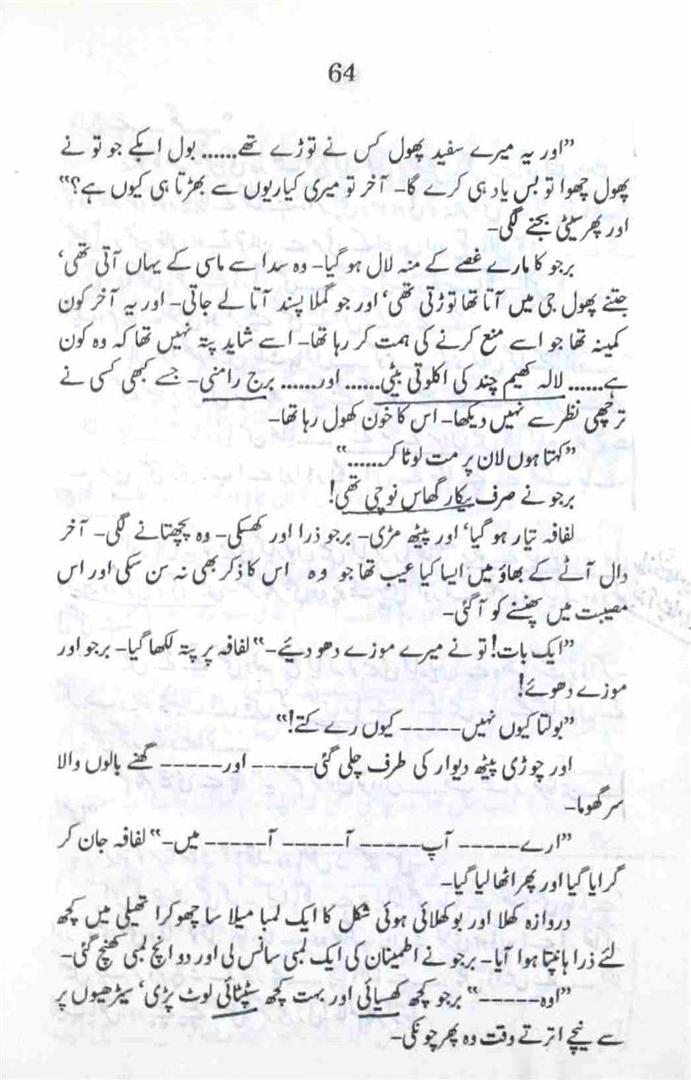 64
”اور یہ میرے سفید پھول کس نے توڑے تھے...... بول ابکے جو تو نے
پھول چھوا تو بس یاد ہی کرے گا۔ آخر تو میری کیاریوں سے بھڑتا ہی کیوں ہے؟“
اور پھر سیٹی بجنے لگی۔
برجو کا مارے غصے کے منہ لال ہو گیا۔ وہ سدا سے ماسی کے یہاں آتی تھی‘
جتنے پھول جی میں آتا تھا توڑتی تھی‘ اور جو گملا پسند آتا لے جاتی۔ اور یہ آخر کون
کمینہ تھا جو اسے منع کرنے کی ہمت کر رہا تھا۔ اسے شاید پتہ نہیں تھا کہ وہ کون
ہے...... لالہ کھیم چند کی اکلوتی بیٹی...... اور...... برج رامنی۔ جسے کبھی کسی نے
ترچھی نظر سے نہیں دیکھا۔ اس کا خون کھول رہا تھا۔
”کہتا ہوں لان پر مت لوٹا کر......“
برجو نے صرف بیکار گھاس نوچی تھی!
لفافہ تیار ہو گیا‘ اور پیٹھ مڑی۔ برجو ذرا اور کھسکی۔ وہ پچھتانے لگی۔ آخر
دال آٹے کے بھاؤ میں ایسا کیا عیب تھا جو وہ اس کا ذکر بھی نہ سن سکی اور اس
مصیبت میں پھنسنے کو آگئی۔
”ایک بات! تو نے میرے موزے دھو دیئے۔“ لفافہ پر پتہ لکھا گیا۔ برجو اور
موزے دھوئے!
”بولتا کیوں نہیں----- کیوں رے کتے!“
اور چوڑی پیٹھ دیوار کی طرف چلی گئی----- اور----- گھنے بالوں والا
سر گھوما۔
”ارے----- آپ----- آ----- آ----- میں۔“ لفافہ جان کر
گرایا گیا اور پھر اٹھا لیا گیا۔
دروازہ کھلا اور بوکھلائی ہوئی شکل کا ایک لمبا میلا سا چھوکرا تھیلی میں کچھ
لئے ذرا ہانپتا ہوا آیا۔ برجو نے اطمینان کی ایک لمبی سانس لی اور دو انچ لمبی کھنچ گئی۔
”اوہ-----“ برجو کچھ کھسیائی اور بہت کچھ سٹپٹائی لوٹ پڑی‘ سیڑھیوں پر
سے نیچے اترتے وقت وہ پھر چونکی۔